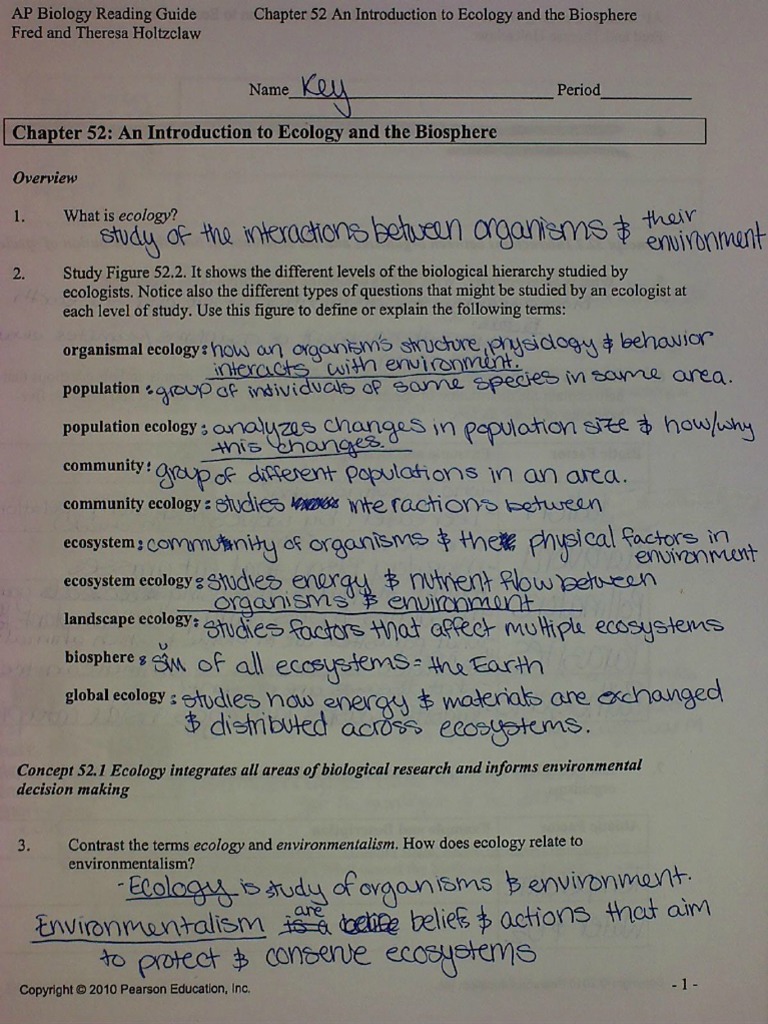 AP Biology Reading Guide Chapter 52 An Introduction to Ecology and the Biosphere
Fred and Theresa Holtzclaw
Name Key Period
Chapter 52: An Introduction to Ecology and the Biosphere
Overview
1. What is ecology?
study of the interactions between organisms & their environment
2. Study Figure 52.2. It shows the different levels of the biological hierarchy studied by
ecologists. Notice also the different types of questions that might be studied by an ecologist at
each level of study. Use this figure to define or explain the following terms:
organismal ecology: how an organism's structure, physiology & behavior
interacts with environment.
population: group of individuals of same species in same area.
population ecology: analyzes changes in population size & how/why
this changes.
community: group of different populations in an area.
community ecology: studies interactions between
ecosystem: community of organisms & the physical factors in
environment
ecosystem ecology: studies energy & nutrient flow between
organisms & environment
landscape ecology: studies factors that affect multiple ecosystems
biosphere: sum of all ecosystems = the Earth
global ecology: studies how energy & materials are exchanged
& distributed across ecosystems.
Concept 52.1 Ecology integrates all areas of biological research and informs environmental
decision making
3. Contrast the terms ecology and environmentalism. How does ecology relate to
environmentalism?
- Ecology is study of organisms & environment.
Environmentalism are beliefs & actions that aim
to protect & conserve ecosystems
Copyright © 2010 Pearson Education, Inc. - 1 -